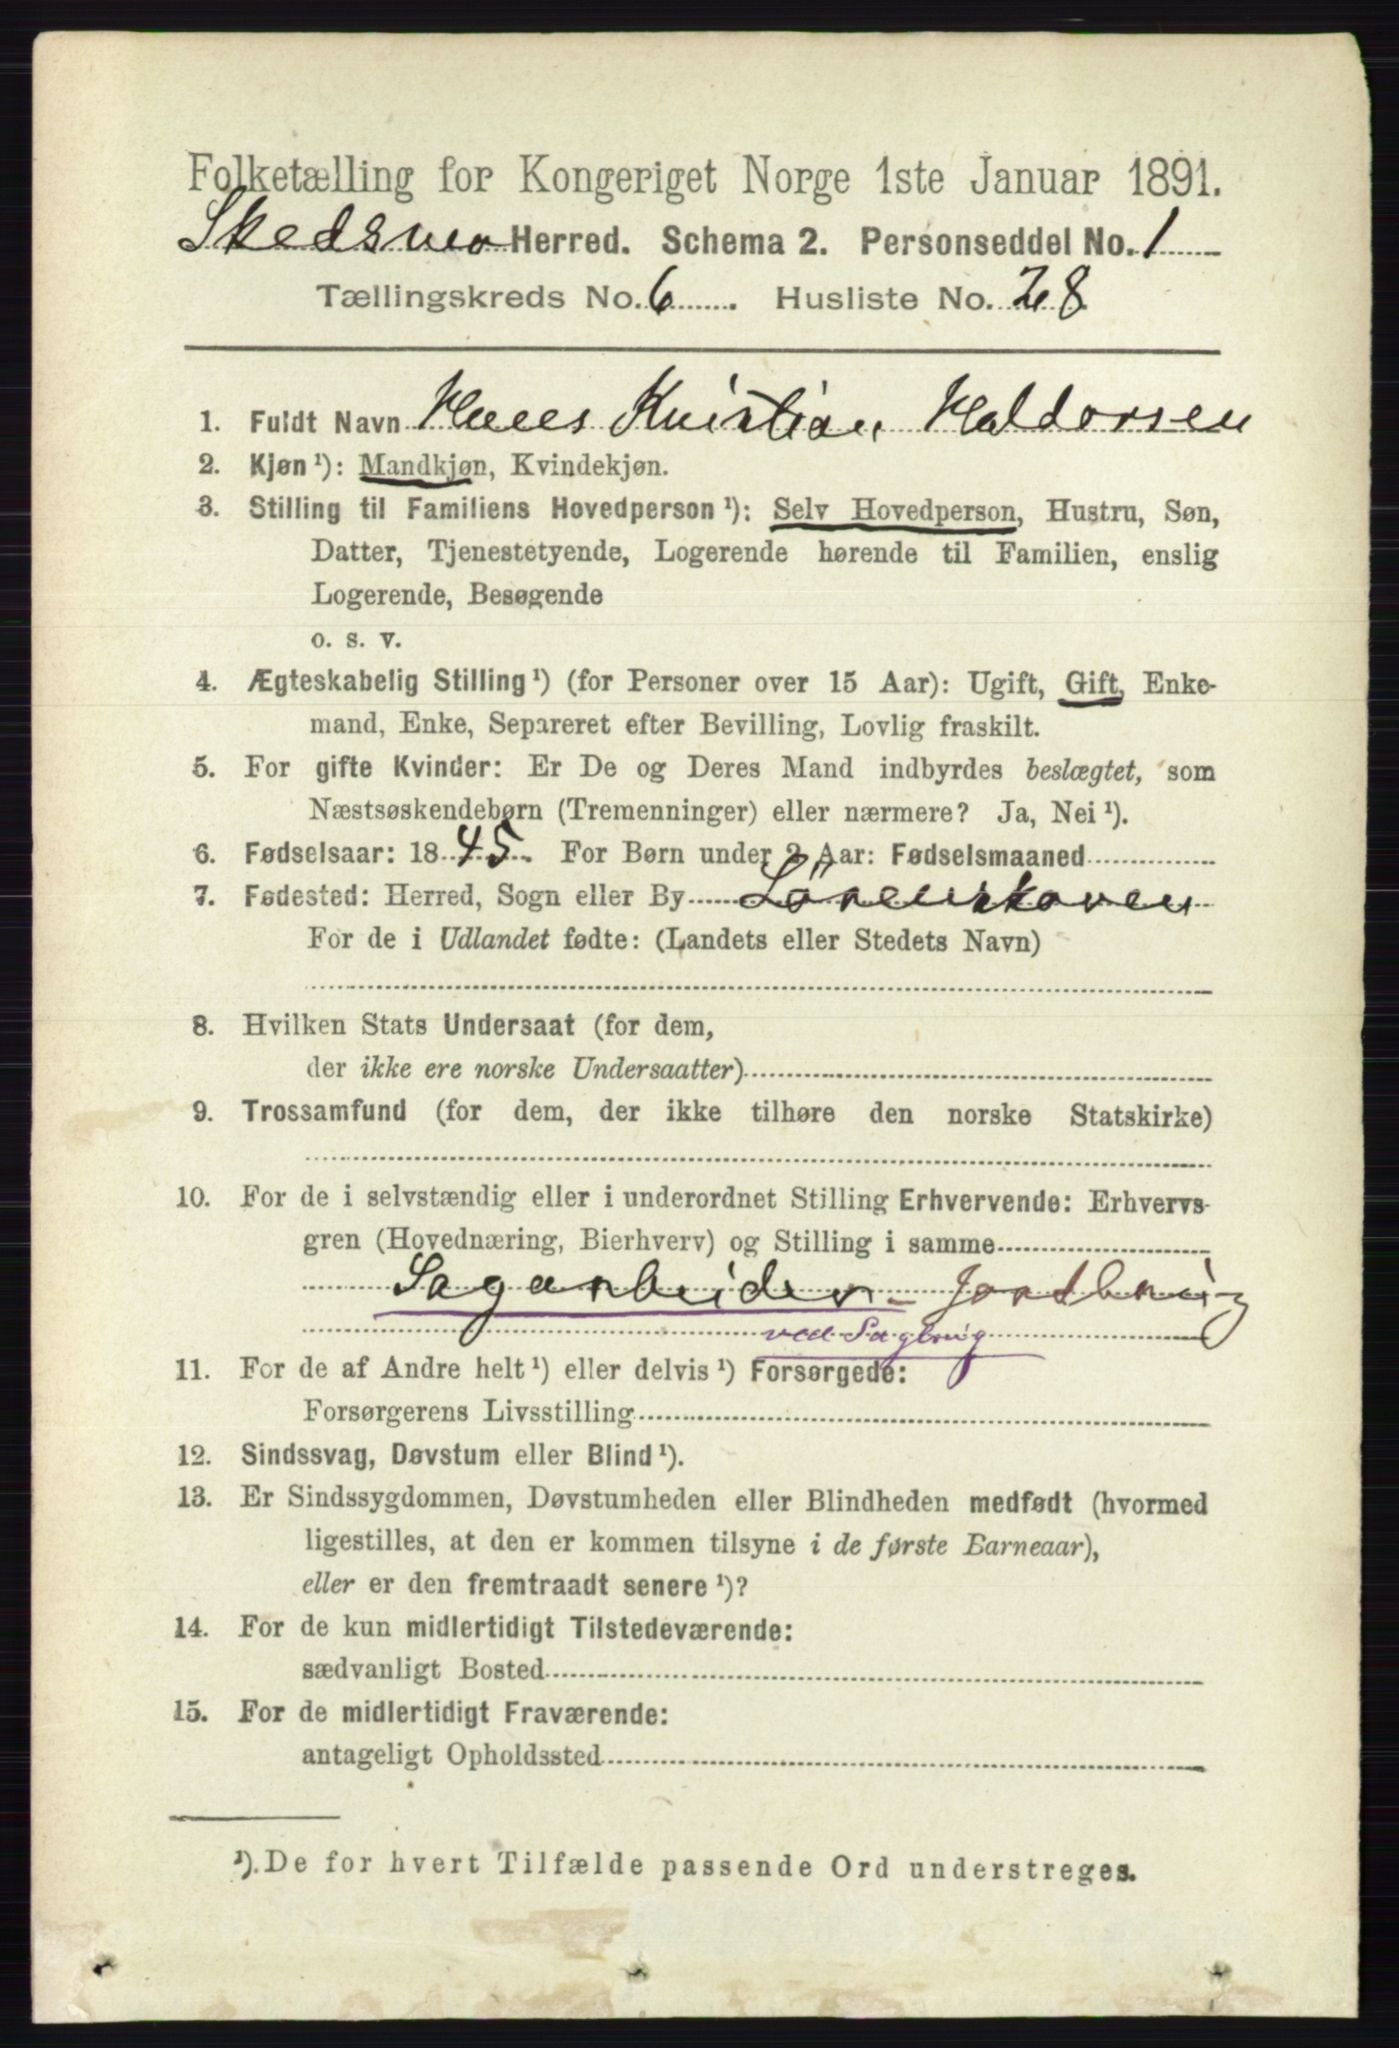 Folketælling for Kongeriget Norge 1ste Januar 1891.
Skedsmo Herred. Schema 2. Personseddel No. 1
Tællingskreds No. 6. Husliste No. 28
1. Fuldt Navn Hans Kristian Haldorsen
2. Kjøn ¹): Mandkjøn, Kvindekjøn.
3. Stilling til Familiens Hovedperson ¹): Selv Hovedperson, Hustru, Søn,
Datter, Tjenestetyende, Logerende hørende til Familien, enslig
Logerende, Besøgende
o. s. v.
4. Ægteskabelig Stilling ¹) (for Personer over 15 Aar): Ugift, Gift, Enke-
mand, Enke, Separeret efter Bevilling, Lovlig fraskilt.
5. For gifte Kvinder: Er De og Deres Mand indbyrdes beslægtet, som
Næstsøskendebørn (Tremenninger) eller nærmere? Ja, Nei ¹).
6. Fødselsaar: 1845. For Børn under 2 Aar: Fødselsmaaned
7. Fødested: Herred, Sogn eller By Lörenskoven
For de i Udlandet fødte: (Landets eller Stedets Navn)
8. Hvilken Stats Undersaat (for dem,
der ikke ere norske Undersaatter)
9. Trossamfund (for dem, der ikke tilhøre den norske Statskirke)
10. For de i selvstændig eller i underordnet Stilling Erhvervende: Erhvervs-
gren (Hovednæring, Bierhverv) og Stilling i samme
Sagarbeider - Jordbrug
ved Sagbrug
11. For de af Andre helt ¹) eller delvis ¹) Forsørgede:
Forsørgerens Livsstilling
12. Sindssvag, Døvstum eller Blind ¹).
13. Er Sindssygdommen, Døvstumheden eller Blindheden medfødt (hvormed
ligestilles, at den er kommen tilsyne i de første Barneaar),
eller er den fremtraadt senere ¹)?
14. For de kun midlertidigt Tilstedeværende:
sædvanligt Bosted
15. For de midlertidigt Fraværende:
antageligt Opholdssted
¹). De for hvert Tilfælde passende Ord understreges.